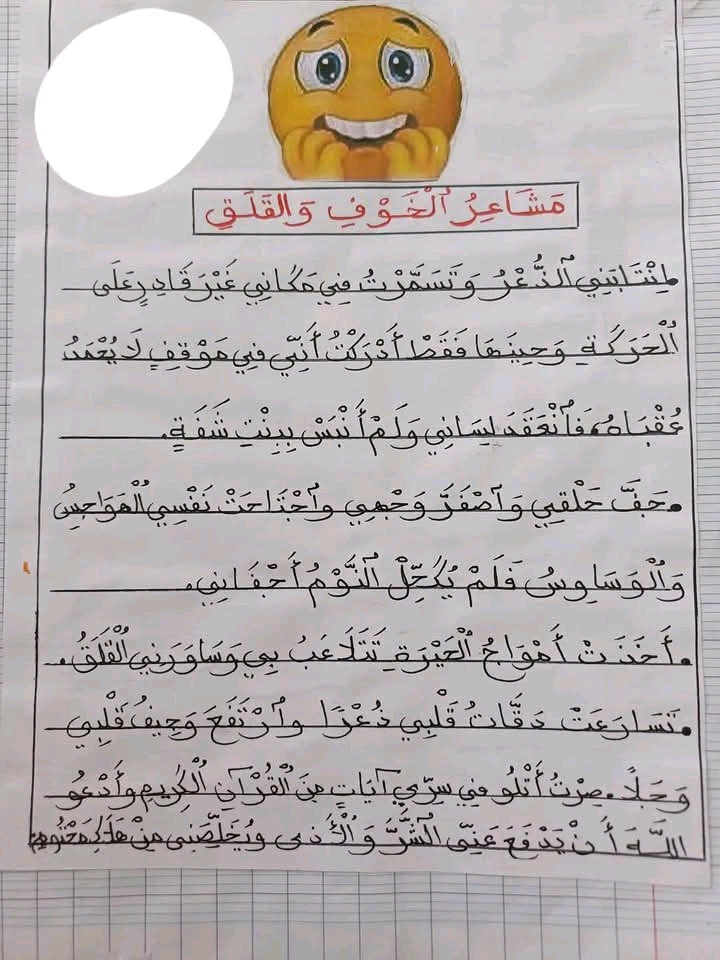 مَشَاعِرُ ٱلْخَوْفِ وَالقَلَقِ
•اِنْتَابَنِي ٱلذُّعْرُ وَتَسَمَّرْتُ فِي مَكَانِي غَيْرَ قَادِرٍ عَلَى
ٱلْحَرَكَةِ وَحِينَهَا فَقَطْ أَدْرَكْتُ أَنِّي فِي مَوْقِفٍ لَا يُحْمَدُ
عُقْبَاهُ، فَٱنْعَقَدَ لِسَانِي وَلَمْ أَنْبَسْ بِبِنْتِ شَفَةٍ.
•جَفَّ حَلْقِي وَٱصْفَرَّ وَجْهِي وٱجْتَاحَتْ نَفْسِي ٱلْهَوَاجِسُ
وَٱلْوَسَاوِسُ فَلَمْ يُكَحِّلْ ٱلنَّوْمُ أَجْفَانِي.
•أَخَذَتْ أَمْوَاجُ ٱلْحَيْرَةِ تَتَلَاعَبُ بِي وَسَاوَرَنِي ٱلْقَلَقُ.
•تَسَارَعَتْ دَقَّاتُ قَلْبِي ذُعْرًا وٱرْتَفَعَ وَجِيفُ قَلْبِي
وَجَلًا. صِرْتُ أَتْلُو فِي سِرِّي آيَاتٍ مِنَ ٱلْقُرْآنِ ٱلْكَرِيمِ وَأَدْعُو
اللَّهَ أَنْ يَدْفَعَ عَنِّي ٱلشَّرَّ وَٱلْأَذَى وَيُخَلِّصَنِي مِنْ هَلَاكٍ مَحْتُومٍ